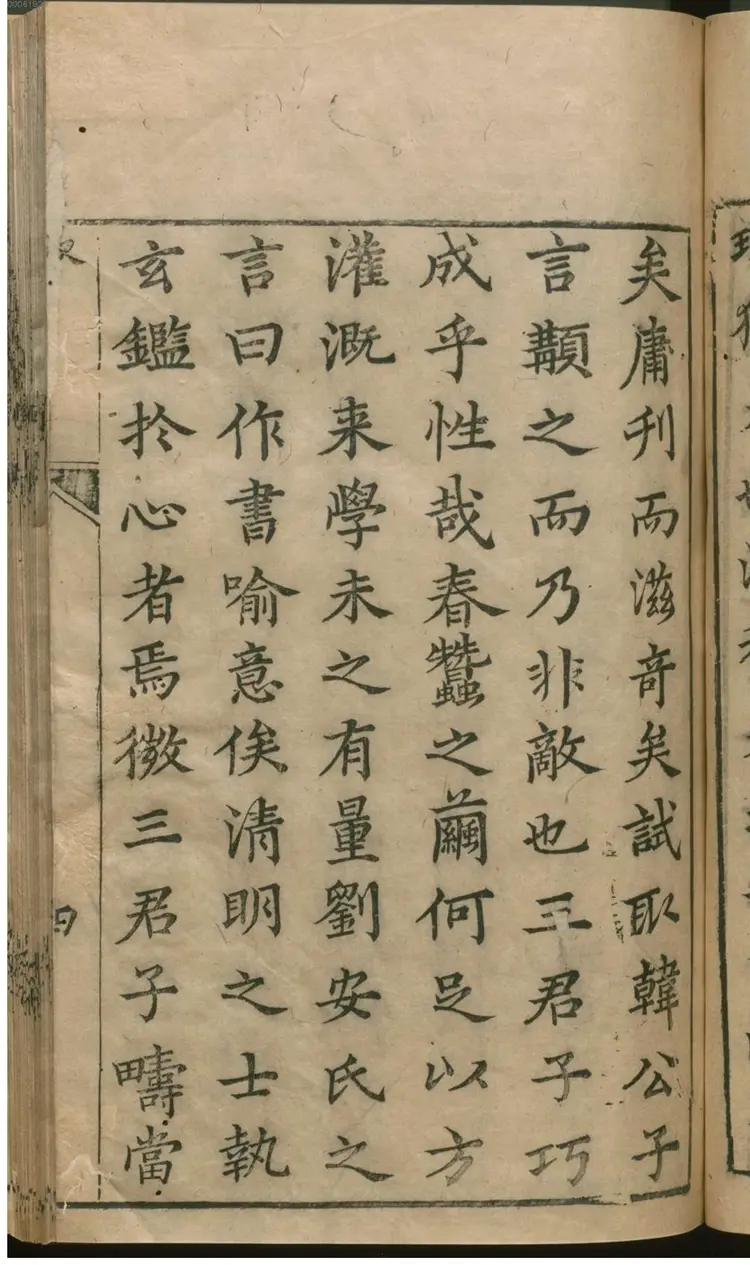 矣庸刋而滋奇矣試取韓公子
言顜之而乃非敵也三君子巧
成乎性哉春蠶之繭何足以方
灌溉来學未之有量劉安氏之
言曰作書喻意俟清明之士執
玄鑑扵心者焉微三君子疇當